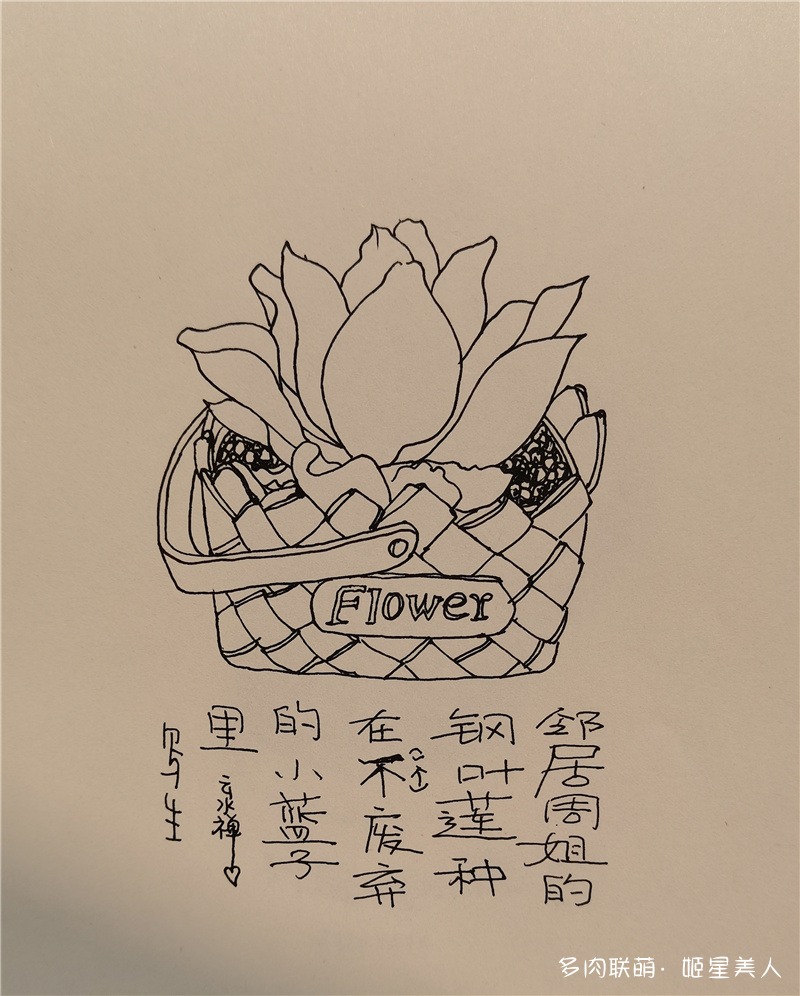 Flower
邻居周姐的
钢叶莲种
在个废弃
的小蓝子
里
写生
多肉联萌·姬星美人